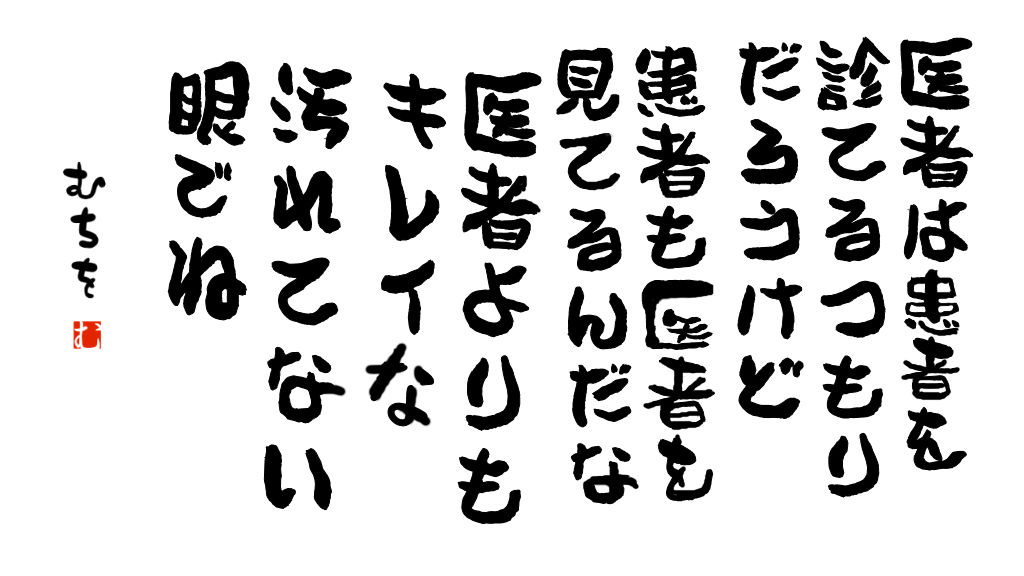 医者は患者を
診てるつもり
だろうけど
患者も医者を
見てるんだな
医者よりも
キレイな
汚れてない
眼でね
むちを
む